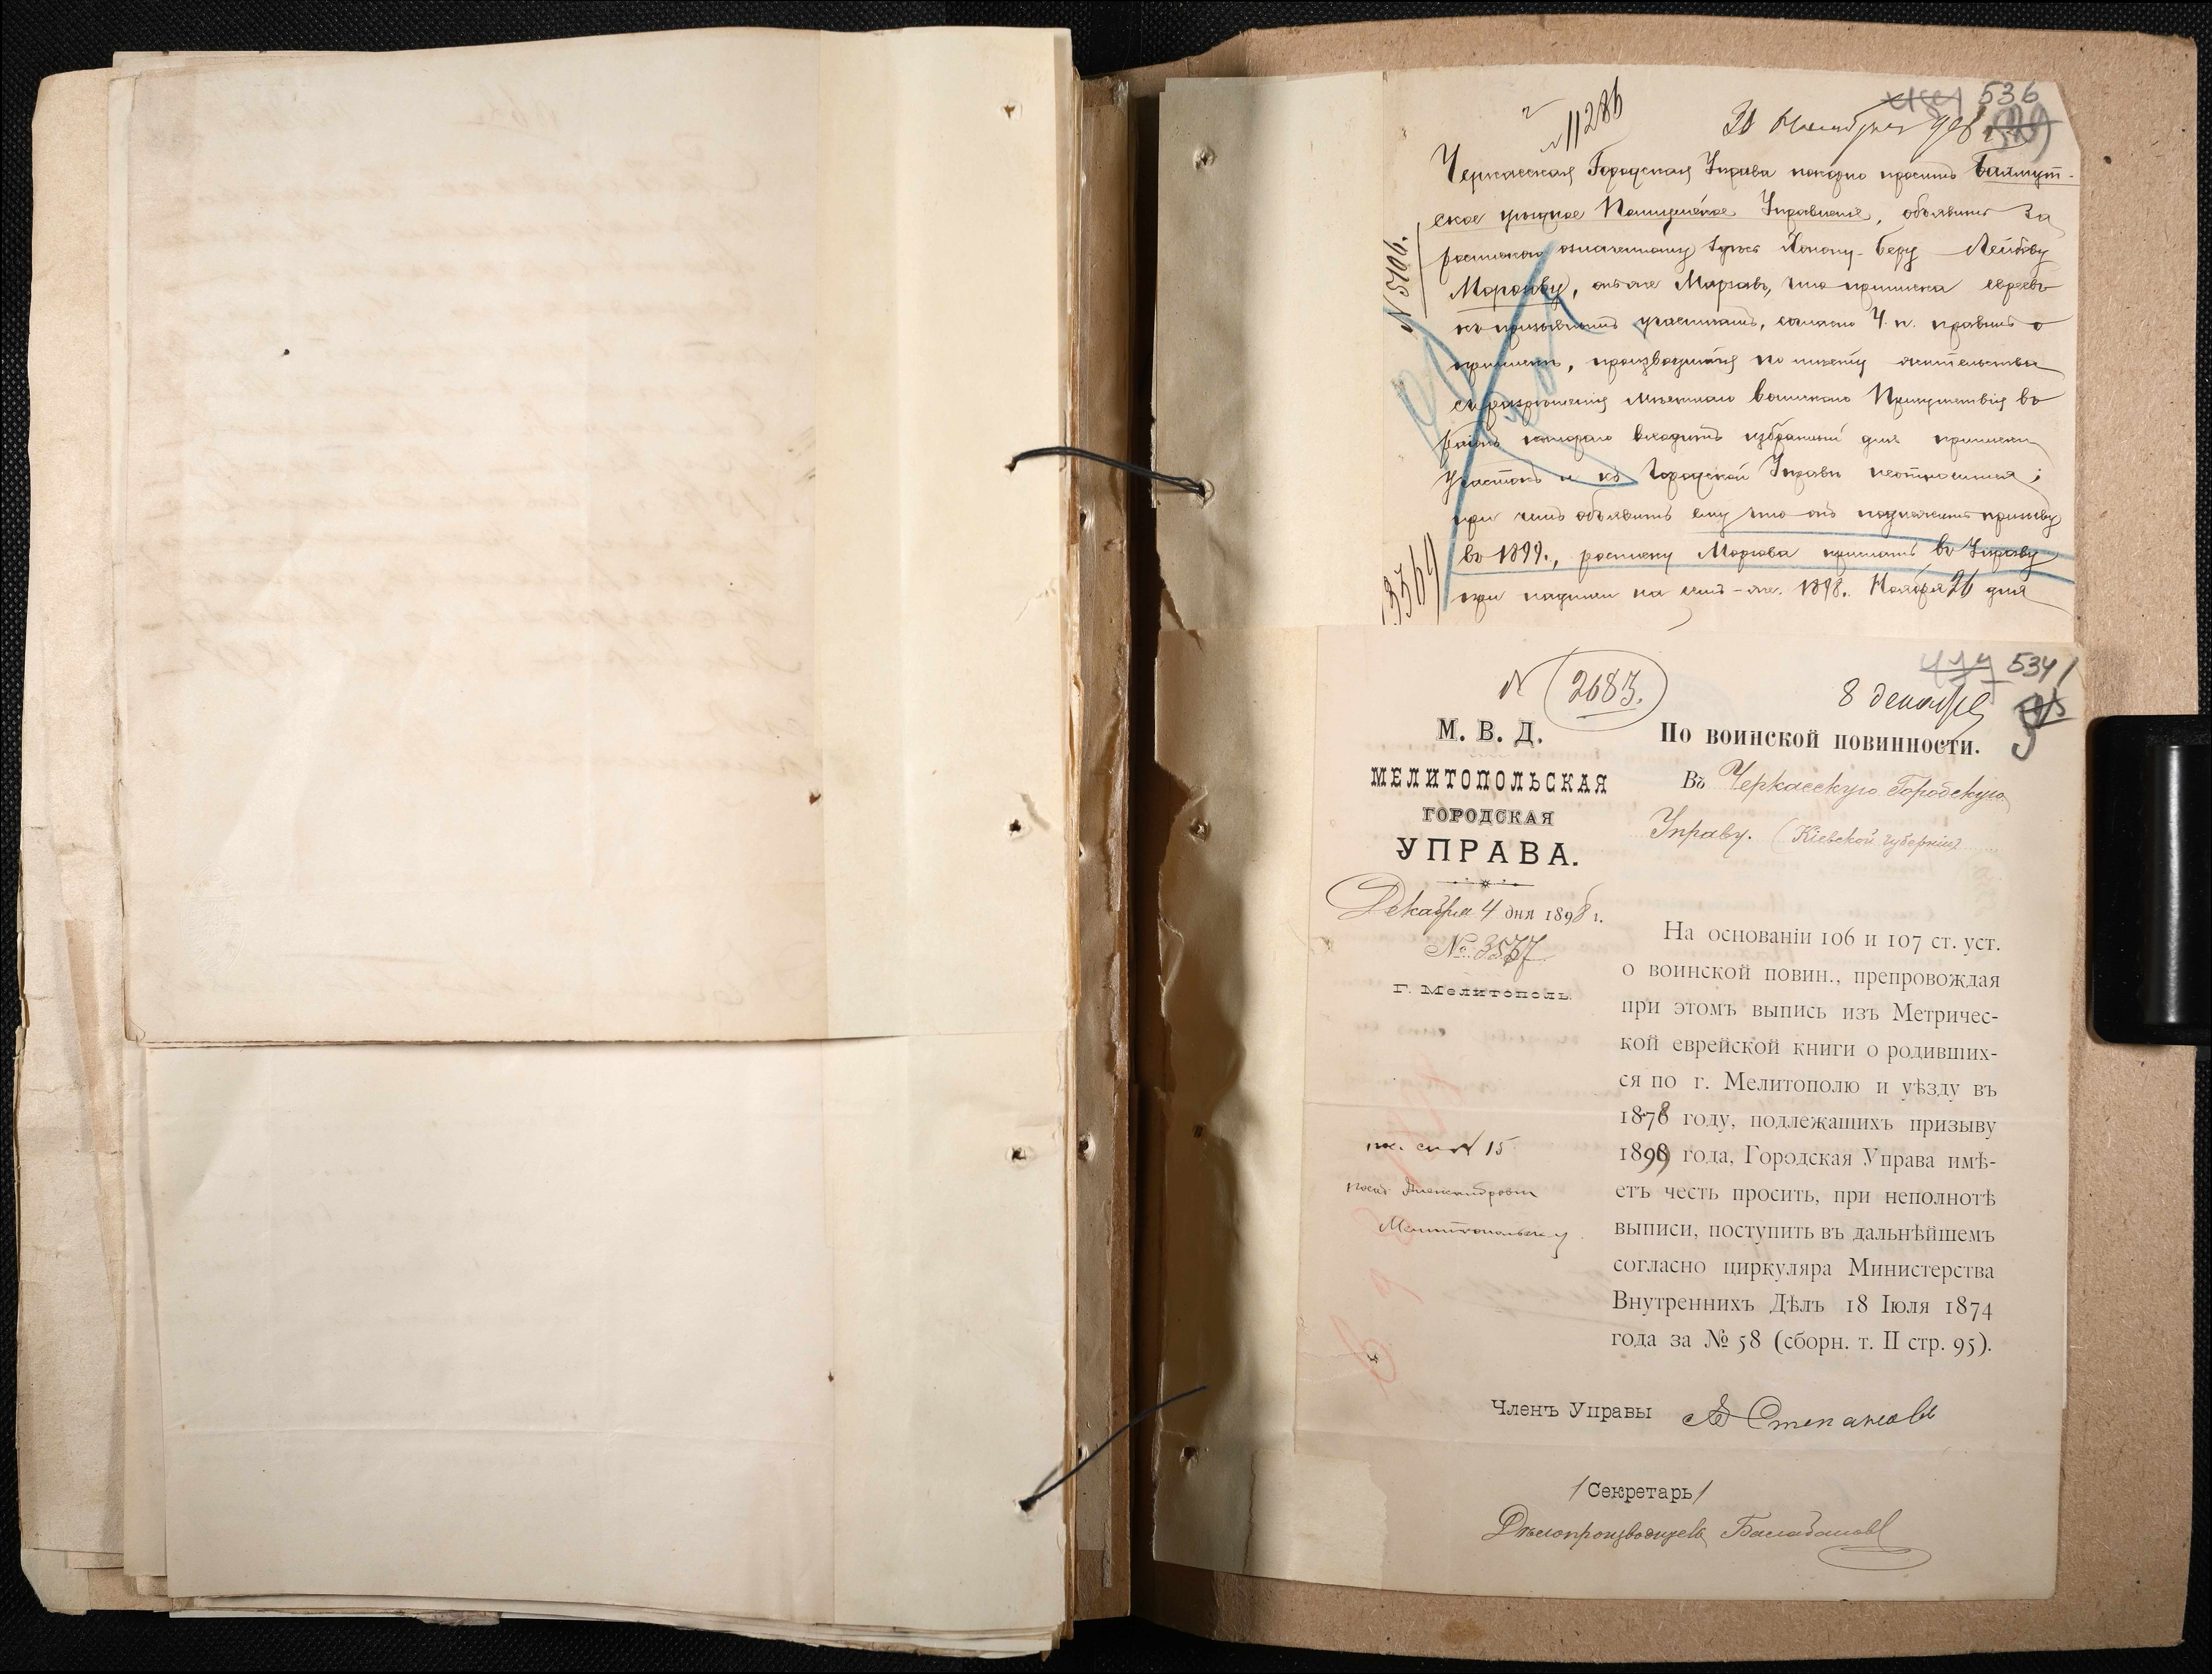 536
№ 11286
30 Ноября 98
Черкасская Городская Управа покорно проситъ Бахмут-
ское уѣздное Полицейское Управленіе, объявить за
роспискою означенному здѣсь Беру Лейбову
Морозову, онъ же что приписка евреевъ
къ призывнымъ участкамъ, согласно 4 п. правилъ о
припискѣ, производится по мѣсту жительства
съ разрѣшенія мѣстнаго воинскаго Присутствія въ
раіонъ котораго входитъ избранный для приписки
участокъ и къ Городской Управѣ неотносится;
при чемъ объявить ему что онъ подлежитъ призыву
въ 1899 г., росписку прислать въ Управу
при надписи на семъ-же. 1898 г. Ноября 26 дня
№ 5106.
534
№ 2683.
8 декабря
М. В. Д.
МЕЛИТОПОЛЬСКАЯ
ГОРОДСКАЯ
УПРАВА.
Декабря 4 дня 1898 г.
№ 3577
Г. Мелитополь.
По воинской повинности.
Въ Черкасскую Городскую
Управу. (Кіевской губерніи)
На основаніи 106 и 107 ст. уст.
о воинской повин., препровождая
при этомъ выпись изъ Метричес-
кой еврейской книги о родивших-
ся по г. Мелитополю и уѣзду въ
1878 году, подлежащихъ призыву
1899 года, Городская Управа имѣ-
етъ честь просить, при неполнотѣ
выписи, поступить въ дальнѣйшемъ
согласно циркуляра Министерства
Внутреннихъ Дѣлъ 18 Іюля 1874
года за № 58 (сборн. т. II стр. 95).
№ 15
Мелитопольскій
Членъ Управы Степановъ
/Секретарь/
Дѣлопроизводитель Балабановъ